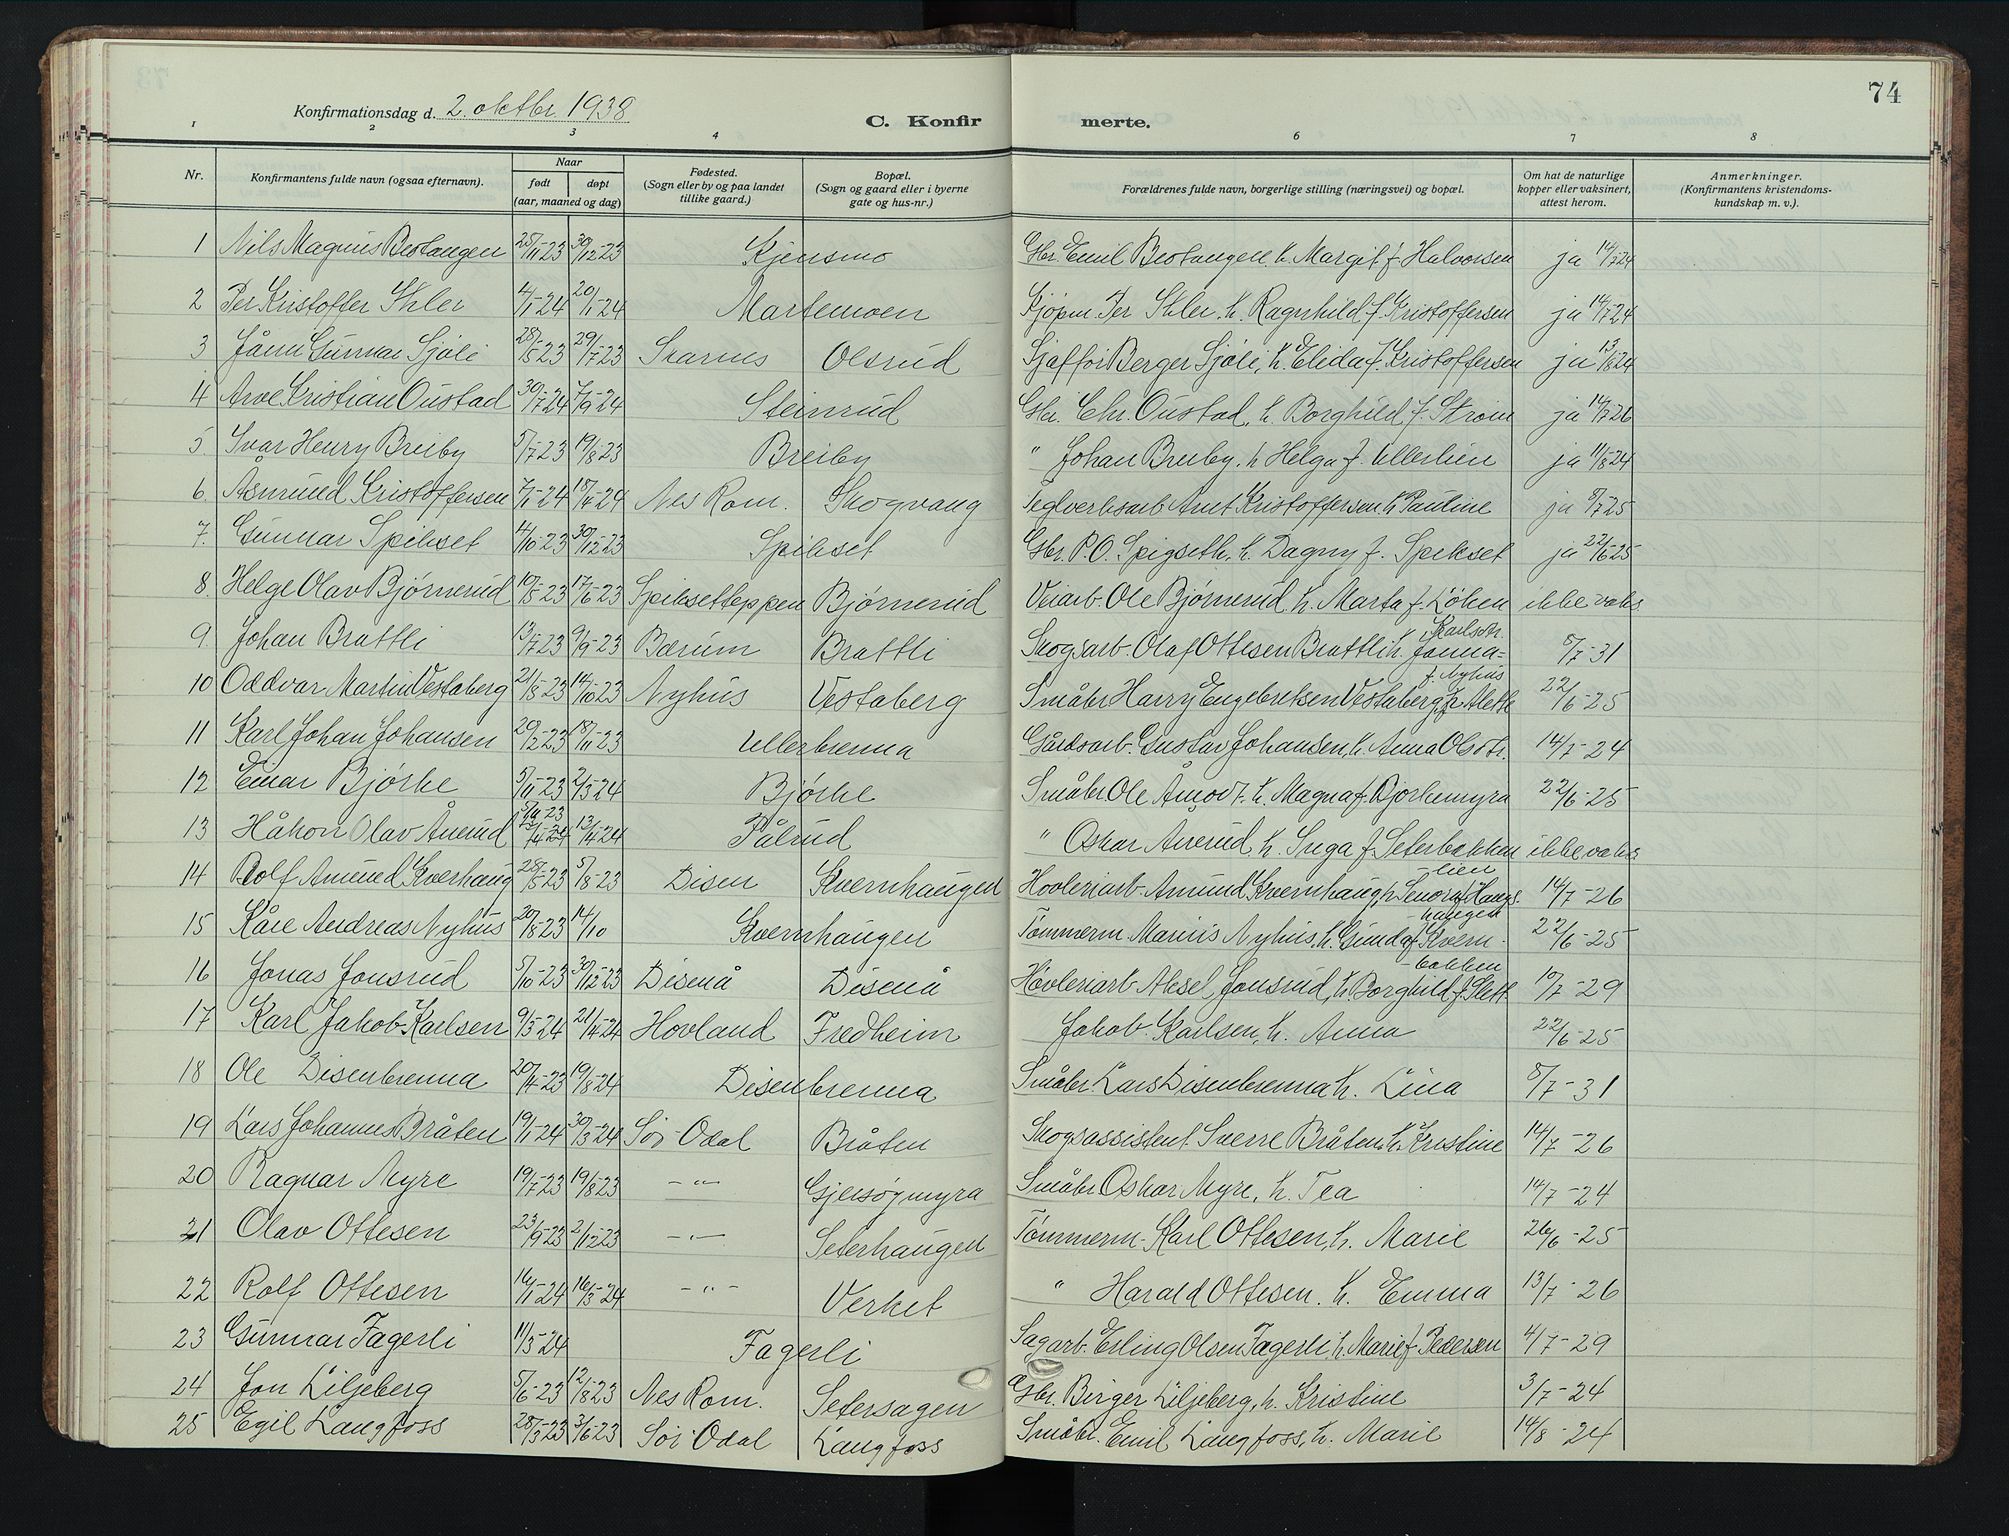 74
Konfirmationsdag d. 2. oktbr. 1938
C. Konfirmerte.
1 2 3 4 6 7 8
Nr. | Konfirmantens fulde navn (ogsaa efternavn). | Naar født | døpt (aar, maaned og dag) | Fødested. (Sogn eller by og paa landet tillike gaard.) | Bopæl. (Sogn og gaard eller i byerne gate og hus-nr.) | Forældrenes fulde navn, borgerlige stilling (næringsvei) og bopæl. | Om hat de naturlige kopper eller vaksinert, attest herom. | Anmerkninger. (Konfirmantens kristendomskundskap m. v.).
1 Nils Magnus Bostangen 25/11-23 30/12-23 Kjensmo Gbr. Emil Bostangen, h. Margit f. Halvorsen ja 14/7-24
2 Per Kristoffer Ihler 4/1-24 20/1-24 Martemoen Kjøpm. Per Ihler. h. Ragnhild f. Kristoffersen ja 14/7-24
3 Jånn Gunnar Sjøli 28/5-23 29/7-23 Skarnes Olsrud Sjaffør Berger Sjøli, h. Elida f. Kristoffersen ja 13/8-24
4 Arve Kristian Oustad 30/7-24 7/9-24 Steinrud Gbr. Chr. Oustad, h. Borghild f. Strøm ja 14/7-26
5. Ivar Henry Breiby 5/7-23 19/8-23 Breiby " Johan Breiby. h. Helga f. Ullerlien ja 11/8-24
6. Asmund Kristoffersen 7/1-24 Nes Rom. Skogvang Teglverksarb Arnt Kristoffersen h. Pauline ja 8/7-25
7. Gunnar Spikset 4/10-23 30/12-23 Spikset Gbr. P.O. Spigseth, h. Dagny f. Spikset ja 22/6-25
8. Helge Olav Bjørnerud 10/5-23 17/6-23 Spiksetteppen Bjørnerud Veiarb. Ole Bjørnerud h. Marta f. Løken ikke vaks
9. Johan Brattli 13/7-23 9/9-23 Bærum Brattli Skogsarb. Olaf Ottesen Brattli h. Janna Karlsdtr. 8/7-31
10 Oddvar Martin Vestaberg 21/8-23 14/10-23 Nyhus Vestaberg Småbr Harry Engebretsen Vestaberg, h. Alette f. Nyhus 22/6-25
11 Karl Johan Johansen 20/2-23 18/11-23 Ullerbrenna Gårdsarb. Gustav Johansen, h. Anna Olsdtr. 14/7-24
12 Einar Bjørke 5/11-23 2/3-24 Bjørke Småbr Ole Åmodt. h. Magna f. Bjørkemyra 22/6-25
13 Håkon Olav Åverud 13/4-24 Pålrud " Oskar Åverud, h. Inga f. Seterbakken ikke vaks.
14 Rolf Amund Kverhaug 28/5-23 5/8-23 Disen Kvernhaugen Høvleriarb. Amund Kvernhaug, h. Lenora f. Haugslien 14/7-26
15 Kåre Andreas Nyhus 20/8-23 14/10 Kvernhaugen Tømmerm. Marius Nyhus, h. Gunda f. Kvernhaugen 22/6-25
16 Jonas Jonsrud 5/10-23 30/12-23 Disenå Disenå Høvleriarb Aksel Jonsrud, h. Borghild f. Slettbakken 10/7-29
17 Karl Jakob Karlsen 9/3-24 21/4-24 Hovland Fredheim Jakob Karlsen, h. Anna 22/6-25
18 Ole Disenbrenna 20/4-23 19/8-24 Disenbrenna Småbr. Lars Disenbrenna h. Lina 8/7-31
19 Lars Johannes Bråten 19/1-24 30/3-24 Sør-Odal Bråten Skogsassistent Sverre Bråten, h. Kristine 14/7-26
20 Ragnar Myre 19/7-23 19/8-23 -"- Gjersøymyra Småbr Oskar Myre, h. Tea 14/7-24
21 Olav Ottesen 23/9-23 2/12-23 -"- Seterhaugen Tømmerm. Karl Ottesen, h. Marie 26/6-25
22 Rolf Ottesen 16/1-24 16/3-24 -"- Verket " Harald Ottesen. h. Emma 13/7-26
23 Gunnar Fagerli 11/3-24 Fagerli Sagarb. Erling Olsen Fagerli, h. Marie f. Pedersen 4/7-29
24 Jon Liljeberg 5/6-23 12/8-23 Nes Rom. Setersagen Gbr. Birger Liljeberg, h. Kristine 3/7-24
25 Egil Langfoss 28/3-23 3/6-23 Sør-Odal Langfoss Småbr. Emil Langfoss, h. Marie 14/8-24